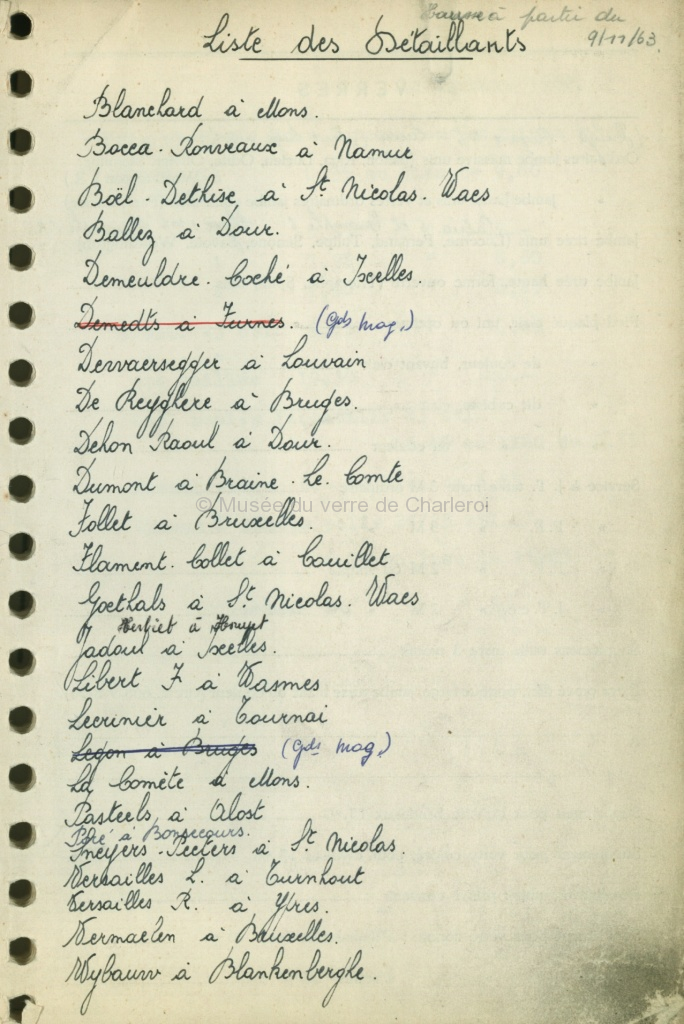 Hausse à partir du
9/11/63.
Liste des Détaillants
Blanchard à Mons.
Bocca. Ronveaux à Namur
Boël. Dethise à St. Nicolas. Waes
Ballez à Dour.
Demeuldre. Coché à Ixelles.
Demedts à Furnes. (Gds Mag.)
Dervaersegger à Louvain
De Reyghere à Bruges.
Dehon Raoul à Dour.
Dumont à Braine. Le. Comte
© Musée du verre de Charleroi
Follet à Bruxelles.
Flament. Collet à Couillet
Goethals à St. Nicolas. Waes
Herbiet à Houyet
Jadoul à Ixelles.
Libert F à Wasmes
Lecrinier à Tournai
Legon à Bruges (Gds Mag.)
La Comète à Mons.
Pasteels à Alost
Péré à Bonsecours.
Sneyers-Peeters à St. Nicolas.
Versailles L. à Turnhout
Versailles R. à Ypres.
Vermaelen à Bruxelles.
Wybauw à Blankenberghe.